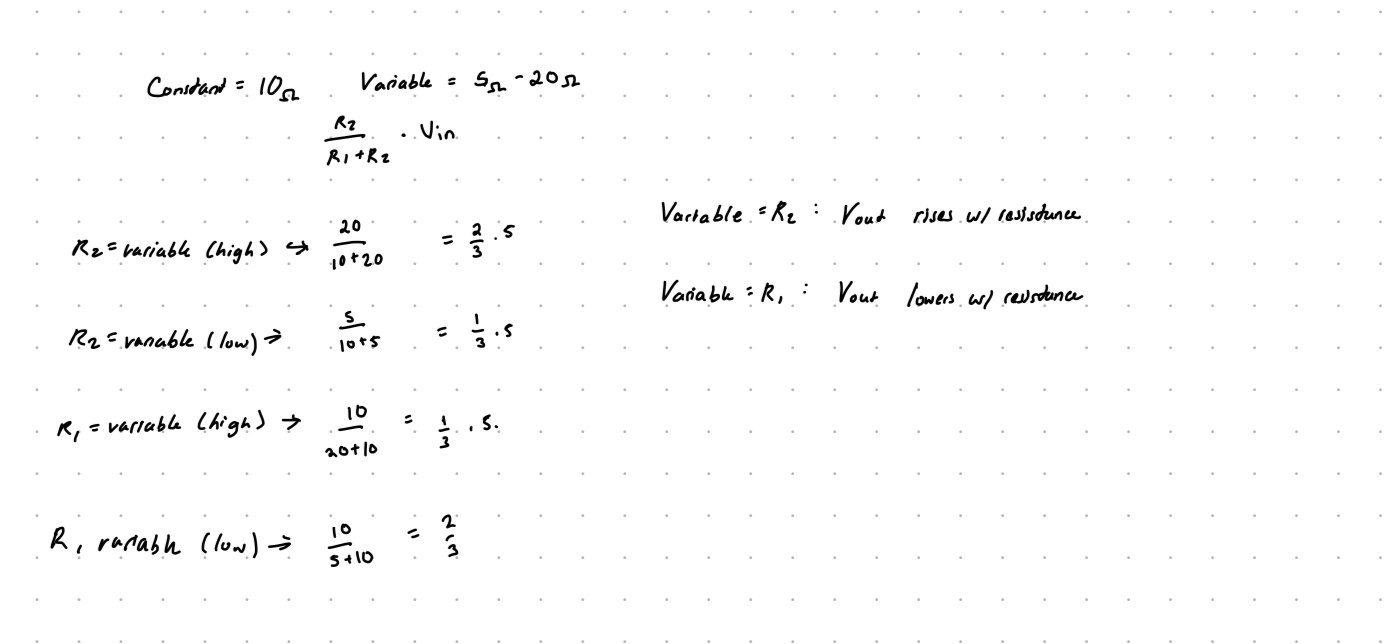 Constant = 10Ω Variable = 5Ω - 20Ω
R2 / R1 + R2 · Vin
R2 = variable (high) → 20 / 10 + 20 = 2/3 · 5
R2 = variable (low) → 5 / 10 + 5 = 1/3 · 5
R1 = variable (high) → 10 / 20 + 10 = 1/3 · 5.
R1 variable (low) → 10 / 5 + 10 = 2/3
Variable = R2 : Vout rises w/ resistance
Variable = R1 : Vout lowers w/ resistance